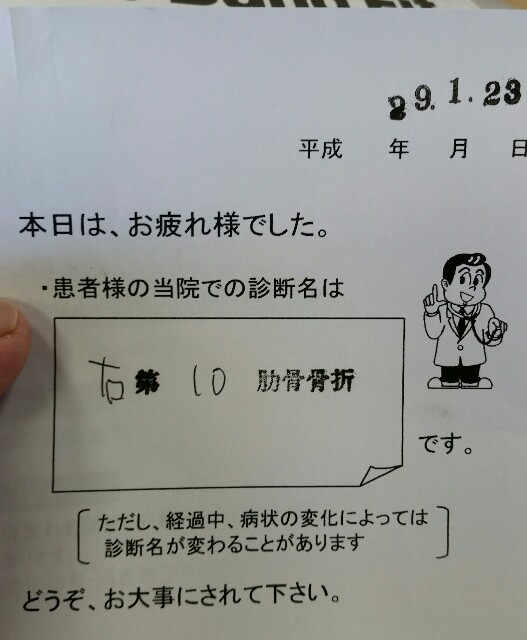 29.1.23
平成 年 月 日
本日は、お疲れ様でした。
・患者様の当院での診断名は
右第 10 肋骨骨折
です。
ただし、経過中、病状の変化によっては
診断名が変わることがあります
どうぞ、お大事にされて下さい。